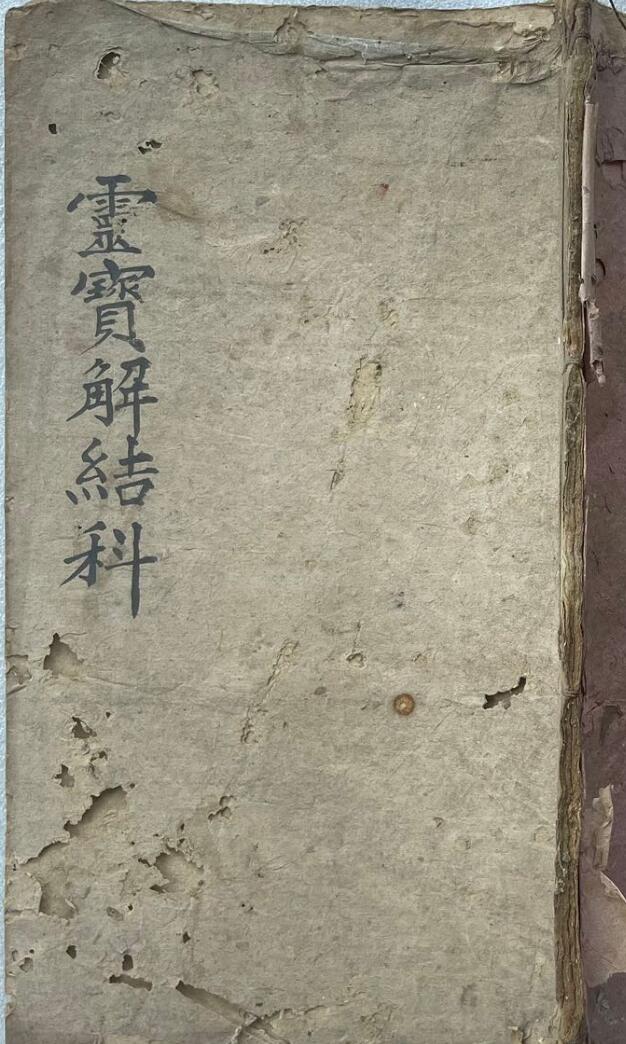 靈寶解結科